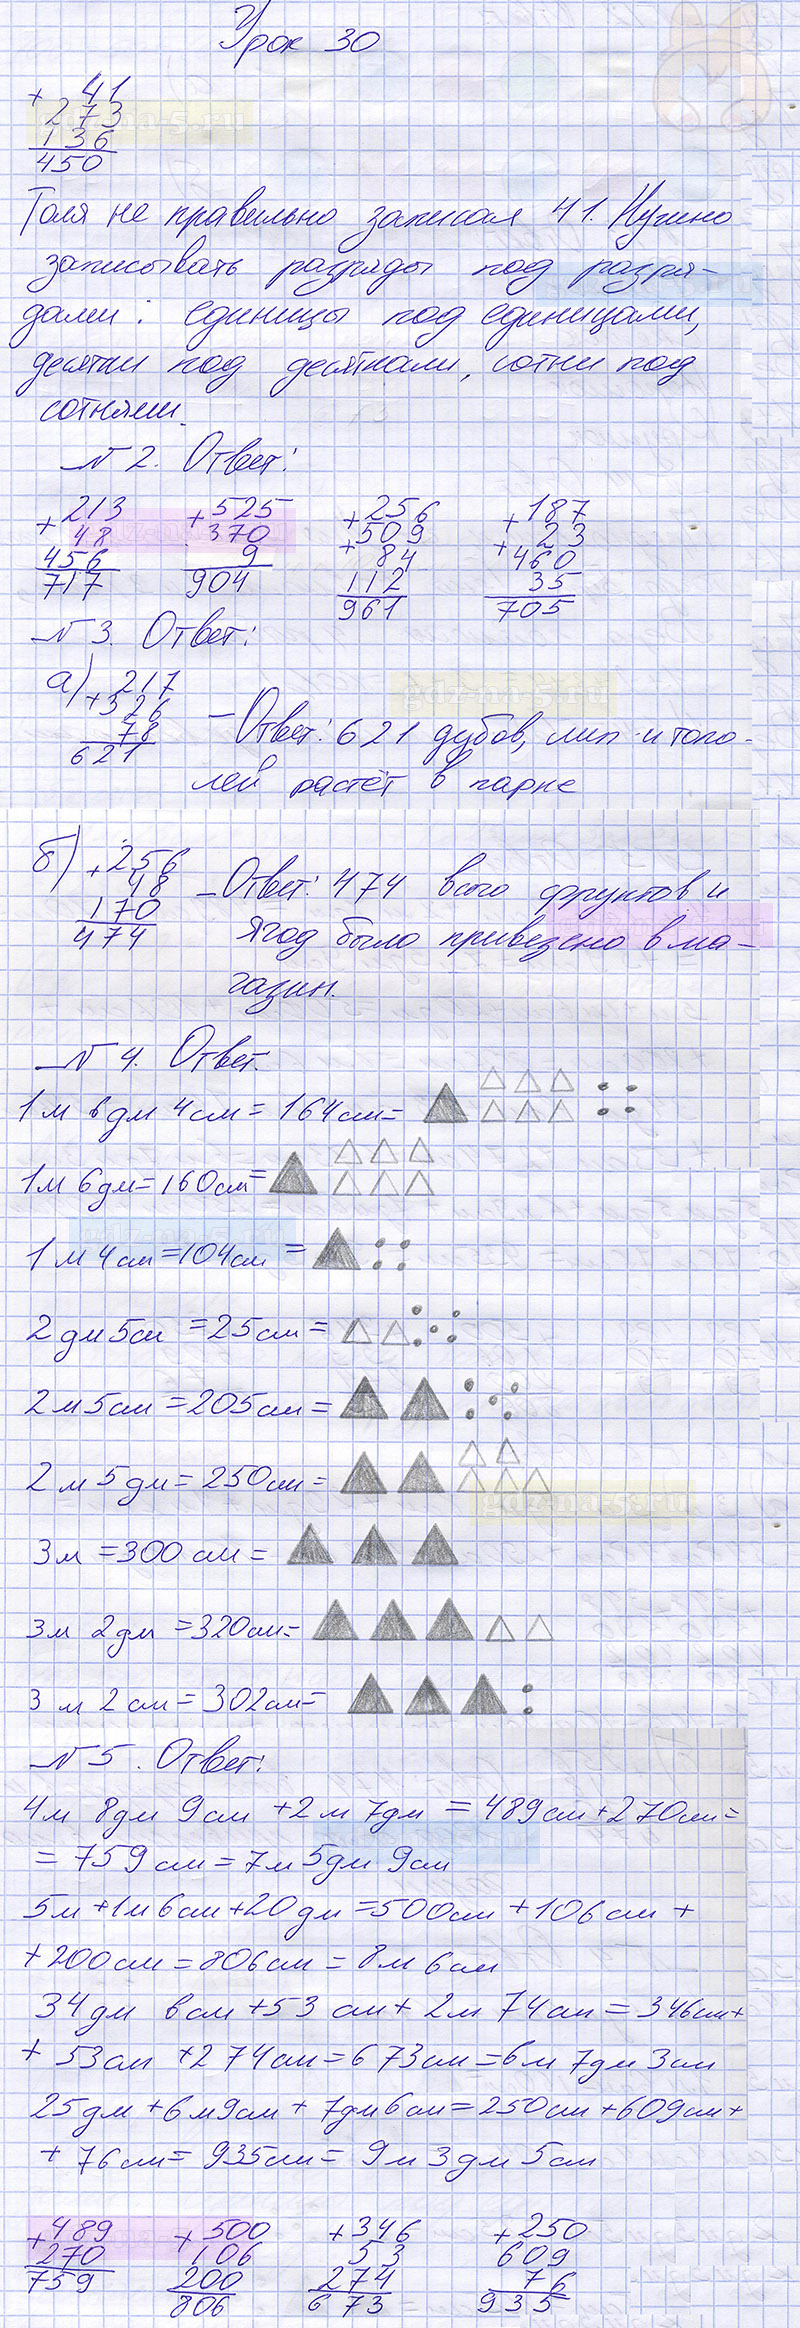 Урок 30
+ 41
273
136
450
Толя не правильно записал 41. Нужно
записывать разряды под разря-
дами: единицы под единицами,
десятки под десятками, сотни под
сотнями.
№ 2. Ответ:
+ 213 + 525 + 256 + 187
48 370 + 509 + 23
456 9 84 460
717 904 112 35
961 705
№ 3. Ответ:
а) + 217
326
78
621
– Ответ: 621 дубов, лип и топо-
лей растёт в парке
б) + 256
48
170
474
– Ответ: 474 всего фруктов и
ягод было привезено в ма-
газин.
№ 4. Ответ.
1м 6дм 4см = 164см=
1м 6дм= 160см=
1м 4см =104см =
2дм 5см =25см =
2м 5см =205см =
2м 5дм= 250см=
3м =300 см =
3м 2дм =320см=
3м 2см = 302см=
№ 5. Ответ:
4м 8дм 9см +2м 7дм = 489см+270см=
= 759см=7м 5дм 9см
5м +1м 6см+20дм =500см +106см +
+200см =806см = 8м 6см
34дм 6см +53 см + 2м 74см = 346см+
+ 53см +274см=673см=6м 7дм 3см
25дм +6м9см + 7дм6см=250см+609см+
+ 76см= 935см= 9м 3дм 5см
+ 489 + 500 + 346 + 250
270 106 53 609
759 200 274 76
806 673 935
gdz-na-5.ru